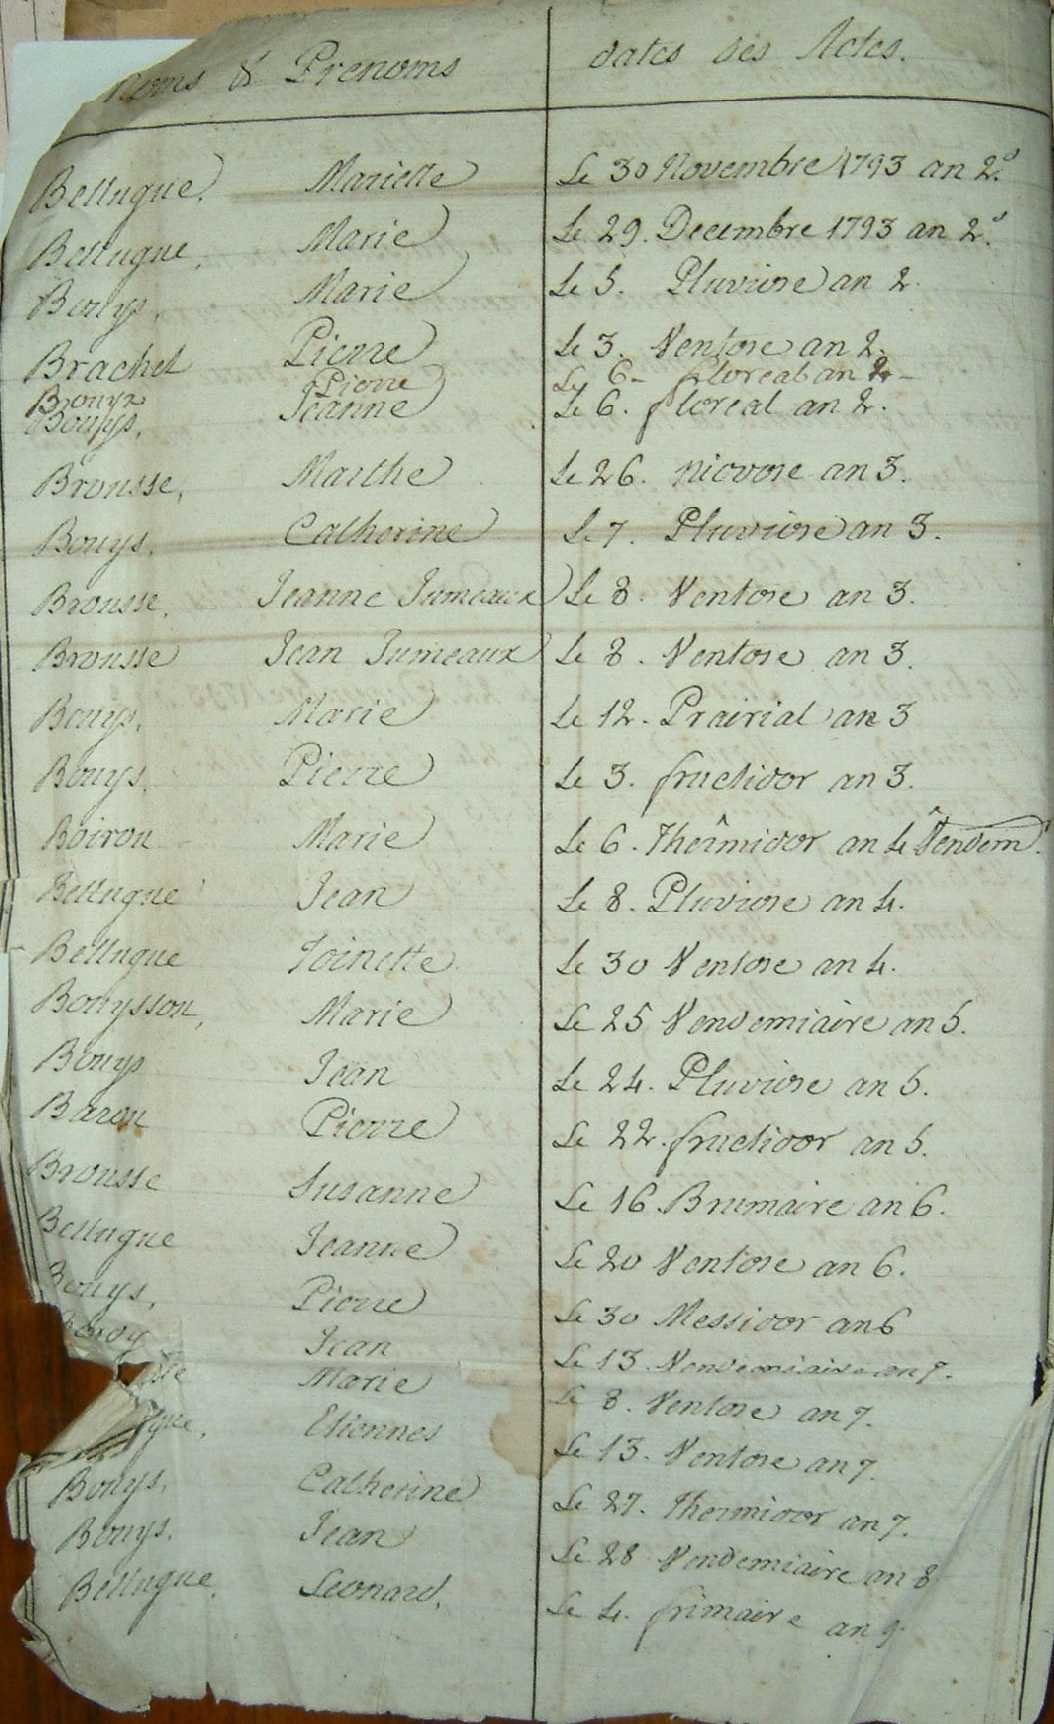 noms & Prenoms dates des Actes.
Bellugue. Mariette Le 30 Novembre 1793 an 2.d
Bellugue, Marie Le 29. Decembre 1793 an 2.d
Bouys, Marie Le 5. Pluviose an 2.
Brachet Pierre Le 3. Ventose an 2.
Bouys Pierre Le 6 - floreal an 2 -
Bouys, Jeanne Le 6. floreal an 2.
Brousse, Marthe Le 26. nivose an 3.
Bouys, Catherine Le 7. Pluviose an 3.
Brousse, Jeanne Jumeaux Le 8. Ventose an 3.
Brousse Jean Jumeaux Le 8. Ventose an 3.
Bouys, Marie Le 12. Prairial an 3
Bouys, Pierre Le 3. fructidor an 3.
Boiron Marie Le 6. thermidor an 4 Vendem.
Bellugue Jean Le 8. Pluviose an 4.
Bellugue Toinette Le 30 Ventose an 4.
Bouysson, Marie Le 25 Vendemiaire an 5.
Bouys Jean Le 24. Pluviose an 5.
Baron Pierre Le 22. fructidor an 5.
Brousse Susanne Le 16 Brumaire an 6.
Bellugue Jeanne Le 20 Ventose an 6.
Bouys, Pierre Le 30 Messidor an 6
Jean Le 13. Vendemiaire an 7.
Marie Le 8. Ventose an 7.
gue, Etiennes Le 13. Ventose an 7.
Bouys, Catherine Le 27. thermidor an 7.
Bouys. Jean Le 28 Vendemiaire an 8
Bellugue. Leonard, Le 4. frimaire an 9